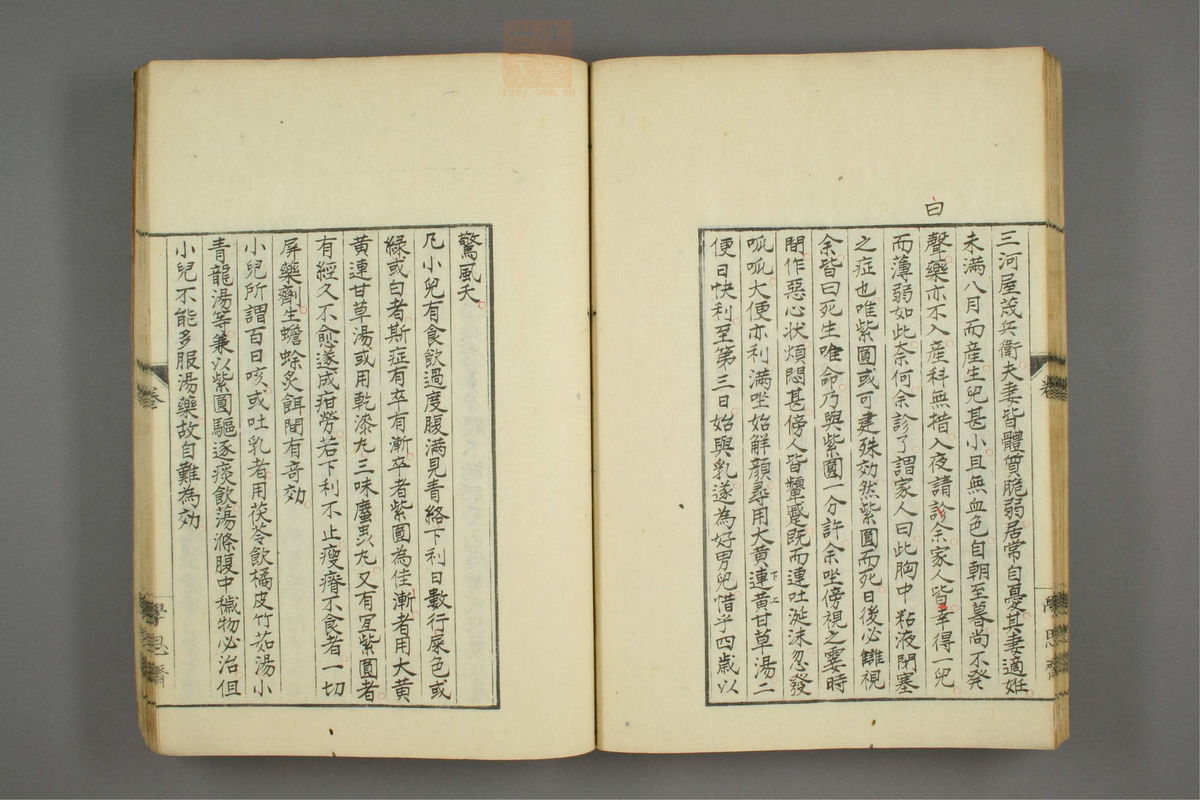 白
三河屋茂兵衛夫妻皆體質脆弱居常自憂其妻適姙
未满八月而產生兒甚小且無血色自朝至暮尚不発
聲藥亦不入產科無措入夜請診余家人皆幸得一兒
而薄弱如此奈何余診了謂家人曰此胸中粘液閉塞
之症也唯紫圓或可建殊効然紫圓而死日後必讎視
余皆曰死生唯命乃與紫圓一分許余坐傍視之霎時
間作惡心状煩悶甚傍人皆顰蹙既而連吐涎沫忽發
呱呱大便亦利满坐始解顔尋用大黄連黄甘草湯二
下上
便日快利至第三日始與乳遂為好男兒惜乎四歳以
驚風夭
凡小兒有食飲過度腹满見青絡下利日數行屎色或
綠或白者斯症有卒有漸卒者紫圓為佳漸者用大黄
黄連甘草湯或用乾漆丸三味䗪虫丸又有宜紫圓者
有經久不愈遂成疳勞若下利不止瘦瘠不食者一切
屏藥劑生蟾蜍炙餌間有奇効
小兒所謂百日咳或吐乳者用茯苓飲橘皮竹茹湯小
青龍湯等兼以紫圓驅逐痰飲蕩滌腹中穢物必治但
小兒不能多服湯藥故自難為効
卷
學思齋
卷
學思齋
zysj.com.cn